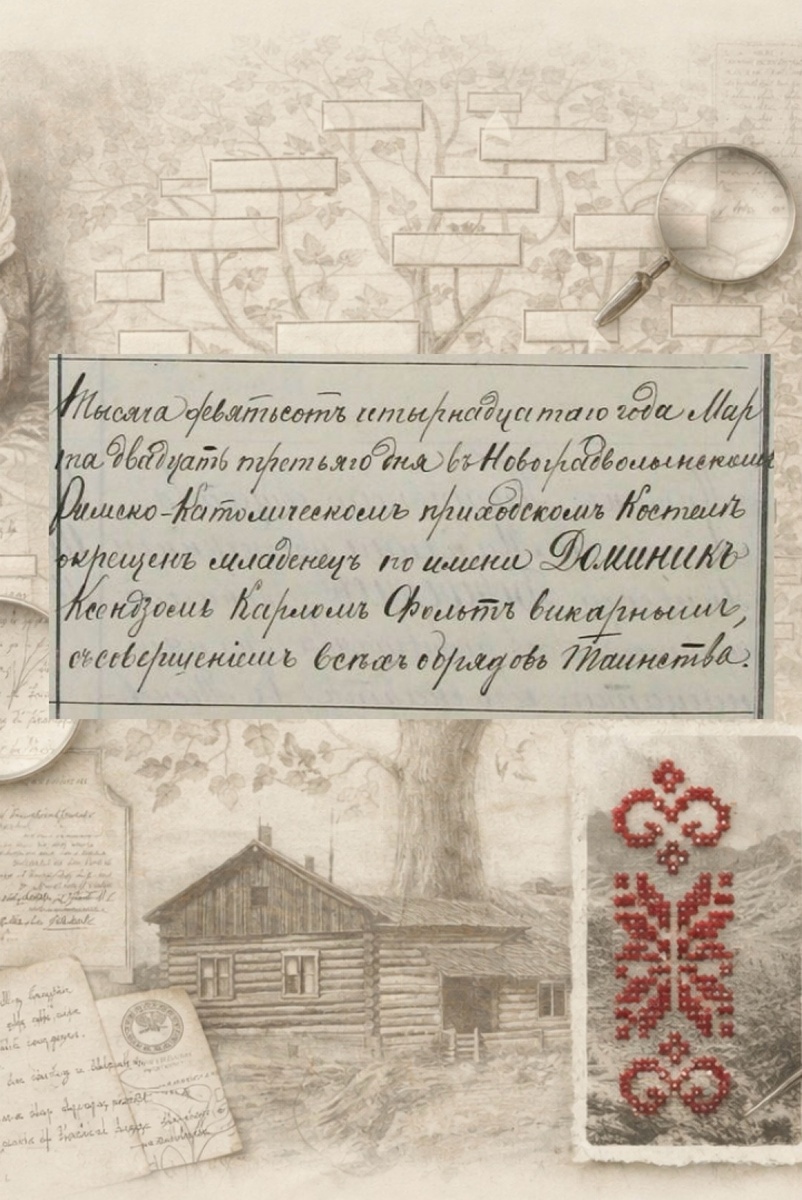 Тысяча девятьсотъ четырнадцатаго года Мар
та двадцать третьяго дня въ Новоградволынскомъ
Римско-Католическомъ приходскомъ Костелѣ
окрещенъ младенецъ по имени Доминикъ
Ксендзомъ Карломъ Фольтъ викарнымъ,
съ совершеніемъ всѣхъ обрядовъ Таинства.